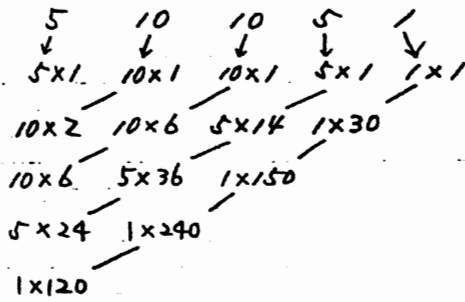 5 10 10 5 1
5×1 10×1 10×1 5×1 1×1
10×2 10×6 5×14 1×30
10×6 5×36 1×150
5×24 1×240
1×120